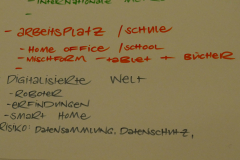 - INTERNATIONALE
-
- ARBEITSPLATZ / SCHULE
- HOME OFFICE / SCHOOL
- MISCHFORM - TABLET + BÜCHER
-
DIGITALISIERTE WELT
- ROBOTER
- ERFINDUNGEN
- SMART HOME
RISIKO: DATENSAMMLUNG, DATENSCHUTZ,